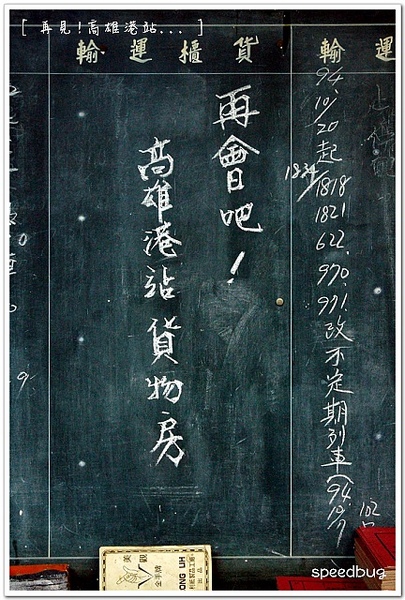 [ 再見!高雄港站... ]
輸運櫃貨
輸運
再會吧!
高雄港站貨物房
94.10/20起
1834/1818
1821
622.
970.
991.改不定期列車
美觀
金手牌
ONG LIH
speedbug